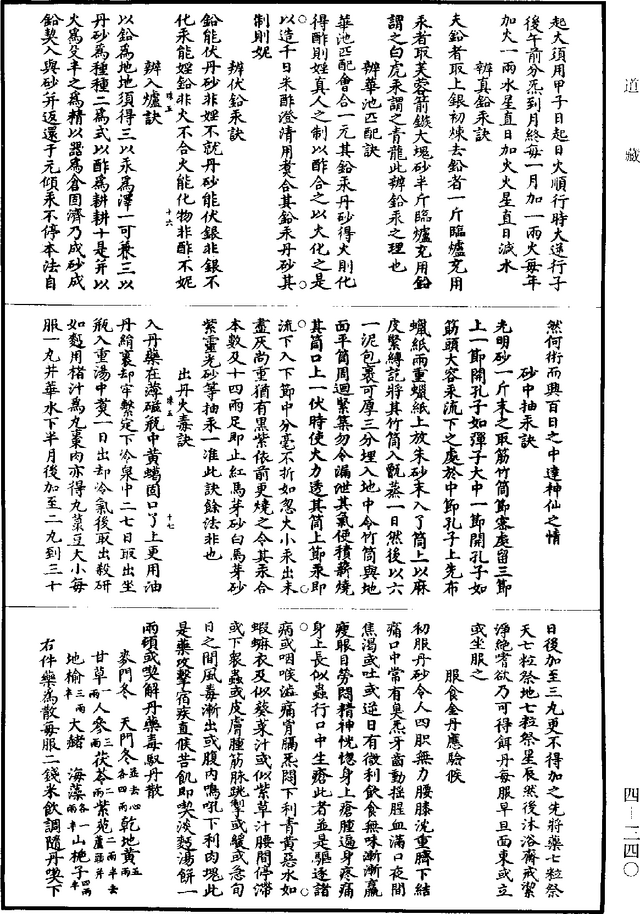 道藏
起火須用甲子日起日火順行時大進行子
後午前分炁到月終每一月加一兩火每年
加火一兩水星直日加火火星直日減水
辨真鉛汞訣
夫鉛者取上銀初煉去鉛者一斤臨爐充用
汞者取芙蓉箭鏃大塊砂半斤臨爐充用鉛
謂之白虎汞謂之青龍此辨鉛汞之理也
辨華池匹配訣
華池匹配會合一元其鉛汞丹砂得火則化
得酢則㛐真人之制以酢合之以大化之是
以造千日米酢澄清用煑合其鉛汞丹砂其
制則妮
辨伏鉛汞訣
鉛能伏丹砂非㛐不就丹砂能伏銀非銀不
化汞能㛐鉛非火不合火能化物非酢不妮
珠五 十六
辨入爐訣
以鉛為地地須得三以汞為澤一可兼三以
丹砂為種種二為式以酢為耕耕十是并以
火為炱半之為精以器為倉固濟乃成砂成
鉛契入與砂并返還于元傾汞不停本法自
然何術而興百日之中達神仙之情
砂中抽汞訣
光明砂一斤末之取筋竹筒節密處留三節
上一節開孔子如彈子大中一節開孔子如
筋頭大容汞流下之處於中節孔子上先布
蠟紙兩重蠟紙上放朱砂末入了筒上以麻
皮緊縛訖將其竹筒入甑蒸一日然後以六
一泥包裹可厚三分埋入地中令竹筒與地
面平筒周迴緊築勿令漏泄其氣便積薪燒
其筒口上一伏時使火力透其筒上節汞即
流下入下節中分毫不折如忽火小汞出未
盡灰尚重猶有黑紫依前更燒之令其汞合
本數及十四兩足即止紅馬芽砂白馬芽砂
紫靈光砂等抽汞一准此訣餘法非也
出丹火毒訣
珠五 十七
入丹藥在薄磁瓶中黃蠟固口了上更用油
丹緔裹却牢繫定下冷泉中二七日取出坐
瓶入重湯中煑一日出却冷氣後取出殺研
如麫用楮汁為丸棗肉亦得丸菉豆大小每
服一丸井華水下半月後加至二丸到三十
日後加至三丸更不得加之先將藥七粒祭
天七粒祭地七粒祭星辰然後沐浴齋戒潔
淨絶嗜欲乃可得餌丹每服早旦面東或立
或坐服之
服食金丹應驗候
初服丹砂令人四肢無力腰膝沈重臍下結
痛口中常有臭炁牙齒動揺腥血滿口夜間
焦渴或吐或逆日有微利飲食無味漸漸羸
瘦眼目勞悶精神恍惚身上瘡腫遍身疼痛
身上長似蟲行口中生瘡此者並是驅逐諸
病或咽喉澁痛胷膈炁悶下利青黃惡水如
蝦蟇衣及似葵菜汁或似紫草汁腰間停滯
或下裂蟲或皮膚腫筋脉跳掣或緩或急旬
日之間風毒漸出或腹内鳴吼下利肉塊此
是藥攻擊宿疾直候苦飢即喫淡麫湯餅一
兩頓或喫解丹藥毒馭丹散
麥門冬 天門冬並去心各四兩 乾地黃五兩
甘草一兩 人參三兩 茯苓二兩 紫菀二兩半去蘆頭并
地榆三兩半 大赭 海藻各一兩 山梔子四兩半
右件藥為散每服二錢米飲調隨丹喫下
四一二四〇